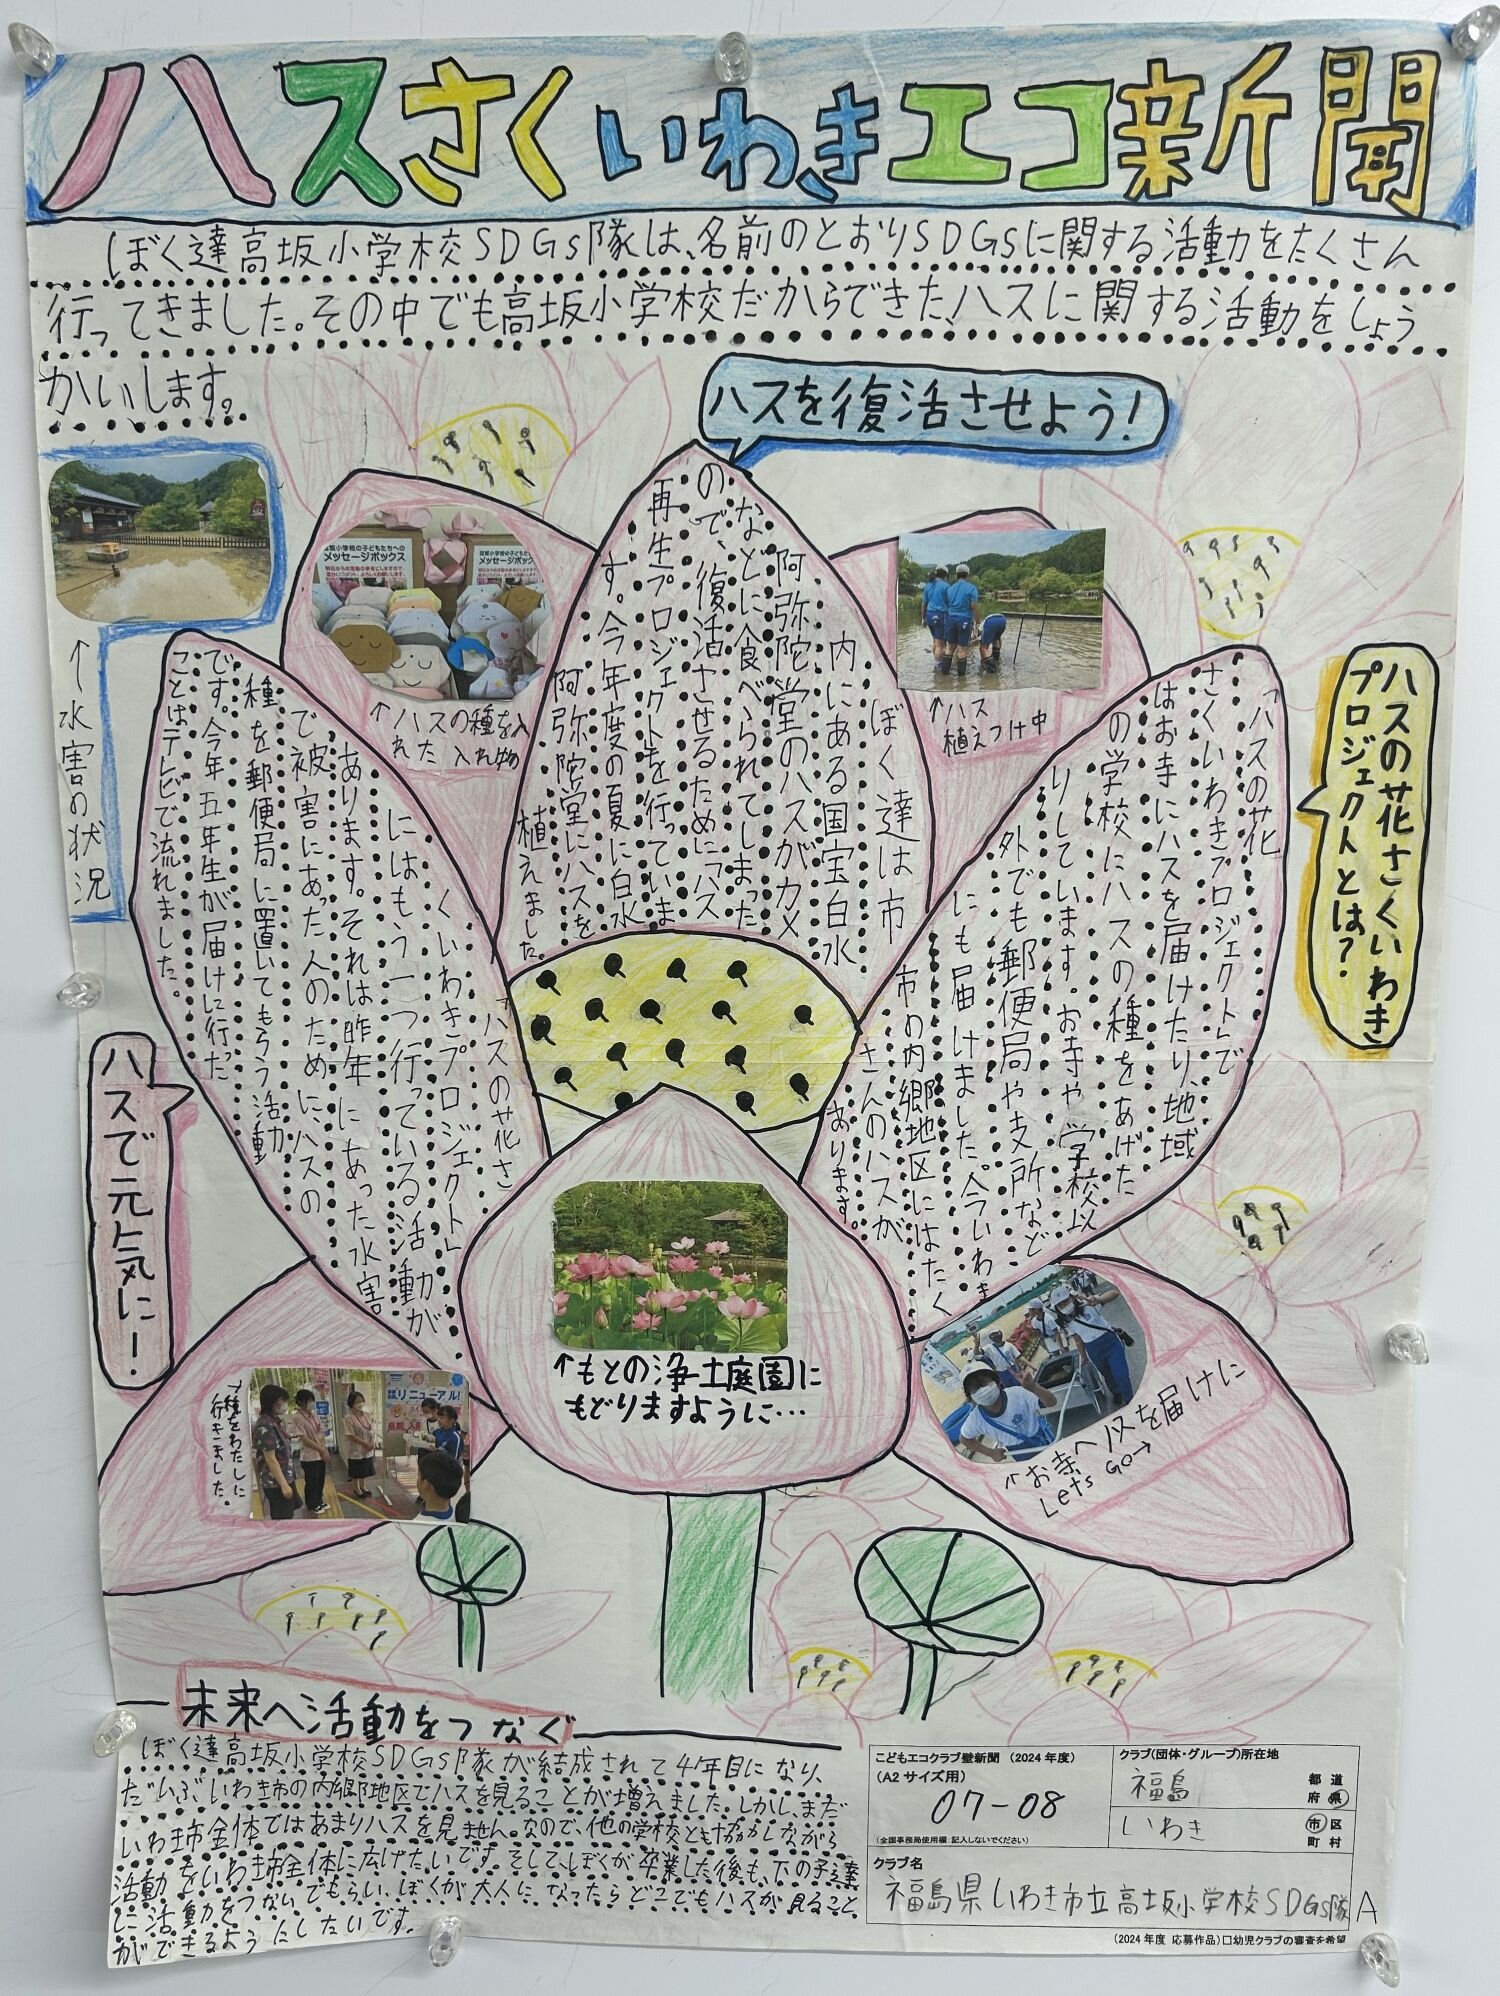 ハスさくいわきエコ新聞
ぼく達高坂小学校SDGs隊は、名前のとおりSDGsに関する活動をたくさん
行ってきました。その中でも高坂小学校だからできた、ハスに関する活動をしょう
かいします。
ハスを復活させよう！
ぼく達は市
内にある国宝白水
阿弥陀堂のハスがカメ
などに食べられてしまった
ので、復活させるために「ハス
再生プロジェクト」を行っていま
す。今年度の夏に白水
阿弥陀堂にハスを
植えました。
↑水害の状況
高坂小学校の子どもたちへの
メッセージボックス
↑ハスの種を入
れた入れ物
↑ハス
植えつけ中
ハスの花さくいわき
プロジェクトとは？
「ハスの花
さくいわきプロジェクト」で
はお寺にハスを届けたり、地域
の学校にハスの種をあげた
りしています。お寺や学校以
外でも郵便局や支所など
にも届けました。今いわき
市の内郷地区にはたく
さんのハスが
あります。
ハスで元気に！
「ハスの花さ
くいわきプロジェクト」
にはもう一つ行っている活動が
あります。それは昨年にあった水害
で被害にあった人のために、ハスの
種を郵便局に置いてもらう活動
です。今年五年生が届けに行った
ことはテレビで流れました。
↑もとの浄土庭園に
もどりますように…
リニューアル！
↑種をわたしに
行きました。
↑お寺へハスを届けに
Lets Go→
未来へ活動をつなぐ
ぼく達高坂小学校SDGs隊が結成されて4年目になり、
だいぶいわき市の内郷地区でハスを見ることが増えました。しかし、まだ
いわき市全体ではあまりハスを見ません。なので、他の学校とも協力しながら
活動をいわき市全体に広げたいです。そして、ぼくが卒業した後も、下の子達
に活動をつないでもらい、ぼくが大人になったらどこでもハスが見ること
ができるようにしたいです。
こどもエコクラブ壁新聞（2024年度）
（A2サイズ用）
07-08
（全国事務局使用欄：記入しないでください）
クラブ（団体・グループ）所在地
福島 都道府県
いわき 市区町村
クラブ名
福島県いわき市立高坂小学校SDGs隊A
（2024年度 応募作品）□幼児クラブの審査を希望